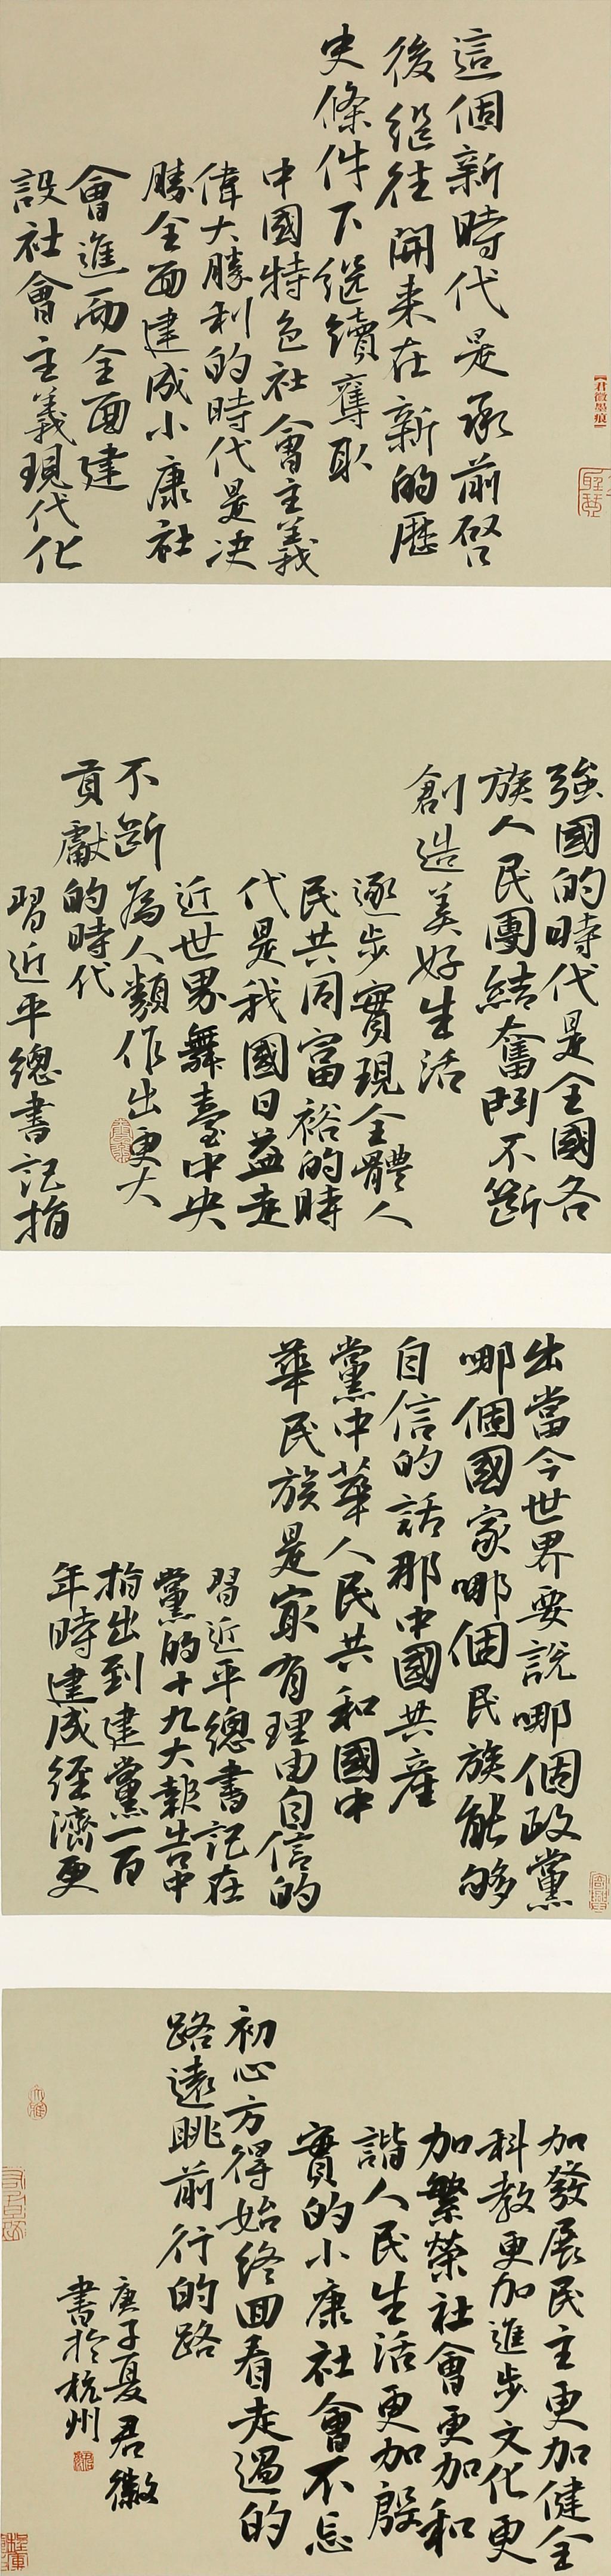 這個新時代是承前啓
後繼往開来在新的歷
史條件下继續奪取
中國特色社會主義
偉大勝利的時代是决
勝全面建成小康社
會進而全面建
設社會主義現代化
【君徽墨痕】
強國的時代是全國各
族人民團結奮鬥不斷
創造美好生活
逐步實現全體人
民共同富裕的時
代是我國日益走
近世界舞臺中央
不断為人類作出更大
貢獻的時代
習近平總書記指
出當今世界要說哪個政黨
哪個國家哪個民族能够
自信的話那中國共產
黨中華人民共和國中
華民族是最有理由自信的
習近平總書記在
黨的十九大報告中
指出到建黨一百
年時建成經濟更
加發展民主更加健全
科教更加進步文化更
加繁榮社會更加和
諧人民生活更加殷
實的小康社會不忘
初心方得始终回看走過的
路遠眺前行的路
庚子夏君徽
書於杭州